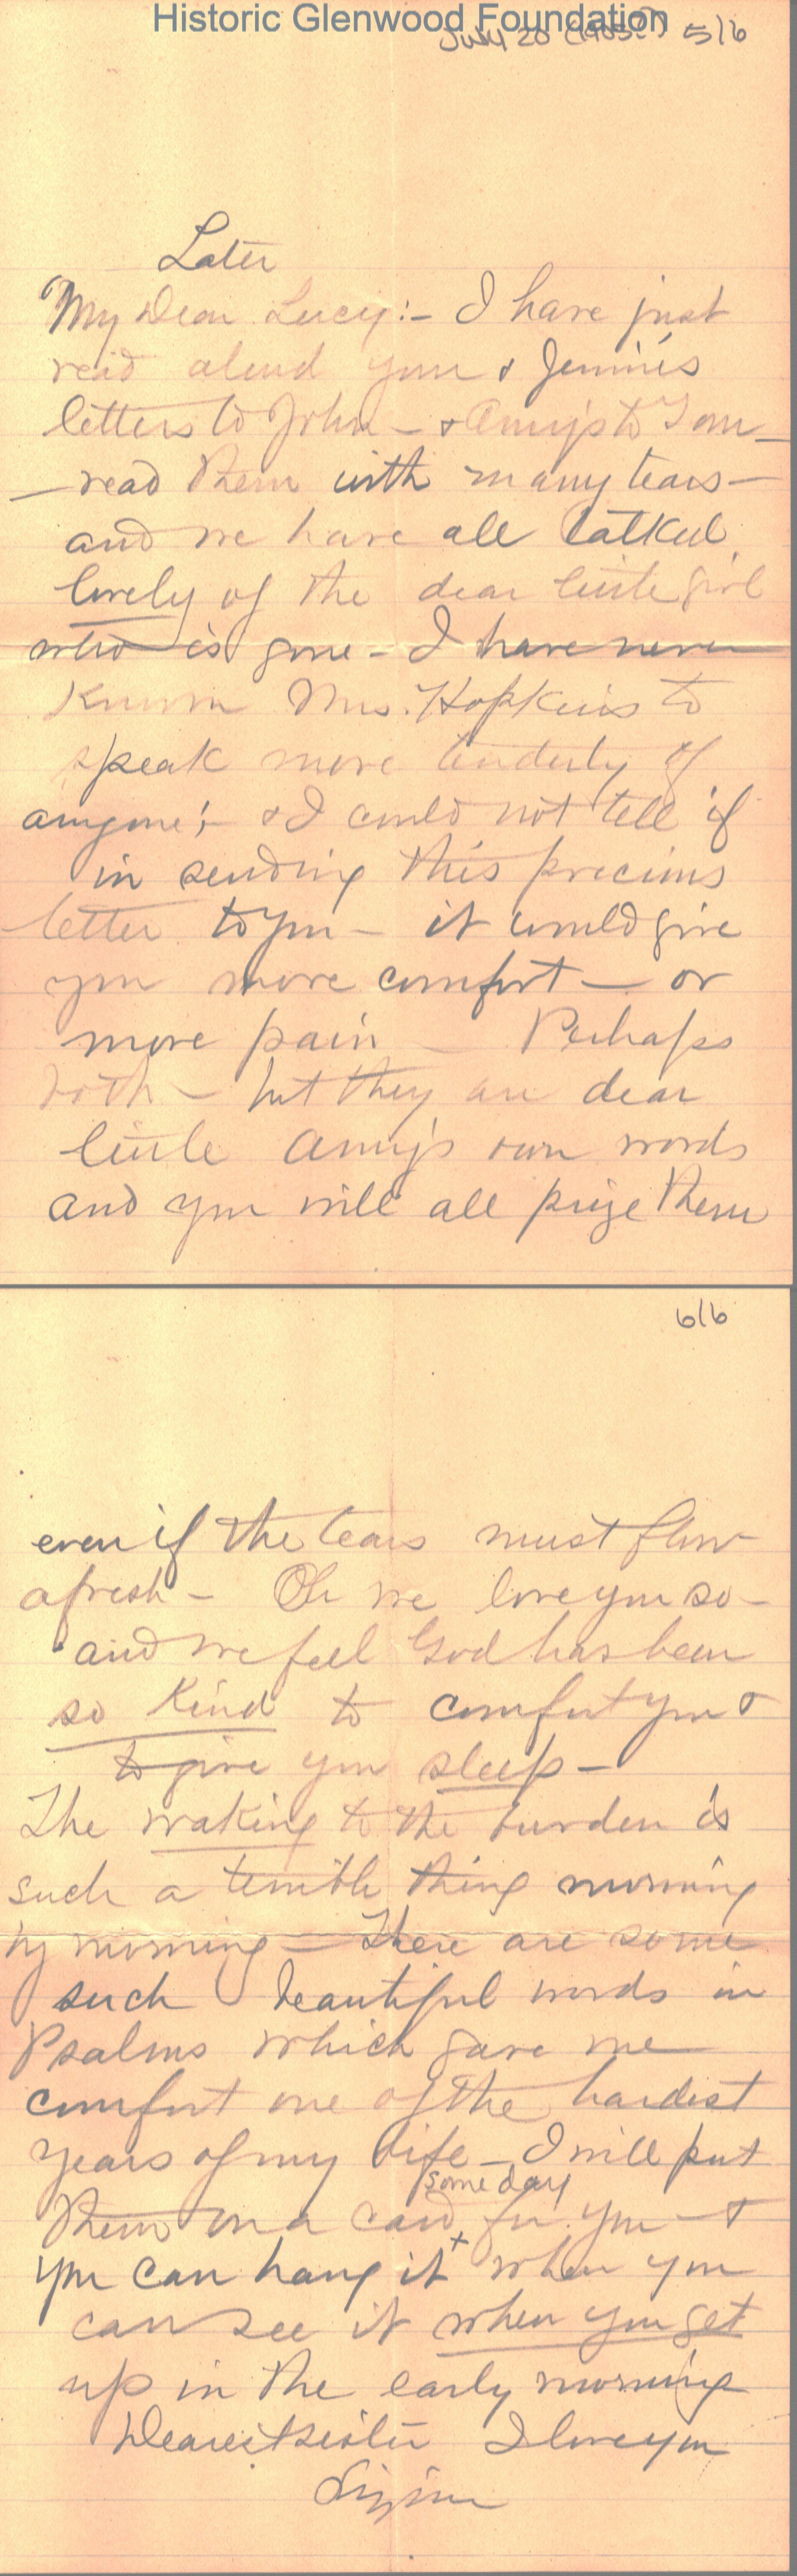 Historic Glenwood Foundation
July 20 (1905?) 5/6
Later
My Dear Lucy:- I have just
read aloud your & Jennie's
letters to John - & Amy's to Tom -
- read them with many tears -
and we have all talked
lovely of the dear little girl
who is gone - I have never
known Mrs. Hopkins to
speak more tenderly of
anyone; - & I could not tell if
in sending this precious
letter to you - it would give
you more comfort - or
more pain - Perhaps
both - but they are dear
little Amy's own words
and you will all prize them
6/6
even if the tears must flow
afresh - Oh we love you so -
and we feel God has been
so kind to comfort you &
to give you sleep -
The waking to the burden is
such a terrible thing morning
by morning - There are some
such beautiful words in
Psalms which gave me
comfort one of the hardest
years of my life - I will put
some day
them on a card for you - &
you can hang it + when you
can see it when you get
up in the early morning
Dearest sister I love you
Lizzie